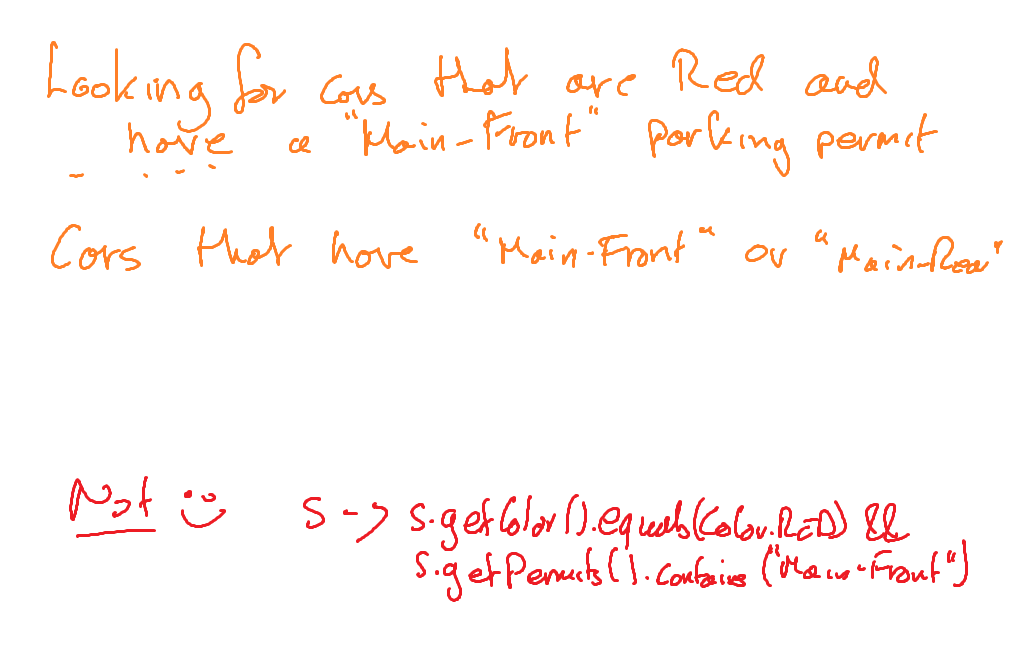 Looking for cars that are Red and
have a "Main-Front" parking permit
Cars that have "Main-Front" or "Main-Rear"
Not :) s -> s.getColor().equals(Color.RED) &&
s.getPermits().contains("Main-Front")